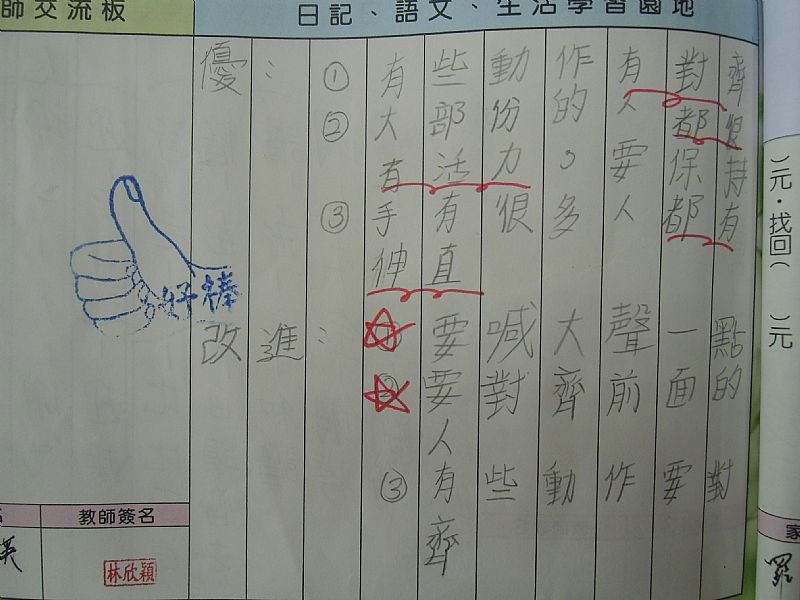 師交流板
日記、語文、生活學習園地
優：①有些動作有對齊
②大部份的人都很
有活力。要保持
③手有很多人都有
伸直
改進：①要喊大聲一點
②要對齊前面的
人
③有些動作要對
齊
好棒
教師簽名
林欣穎
）元．找回（　）元
家